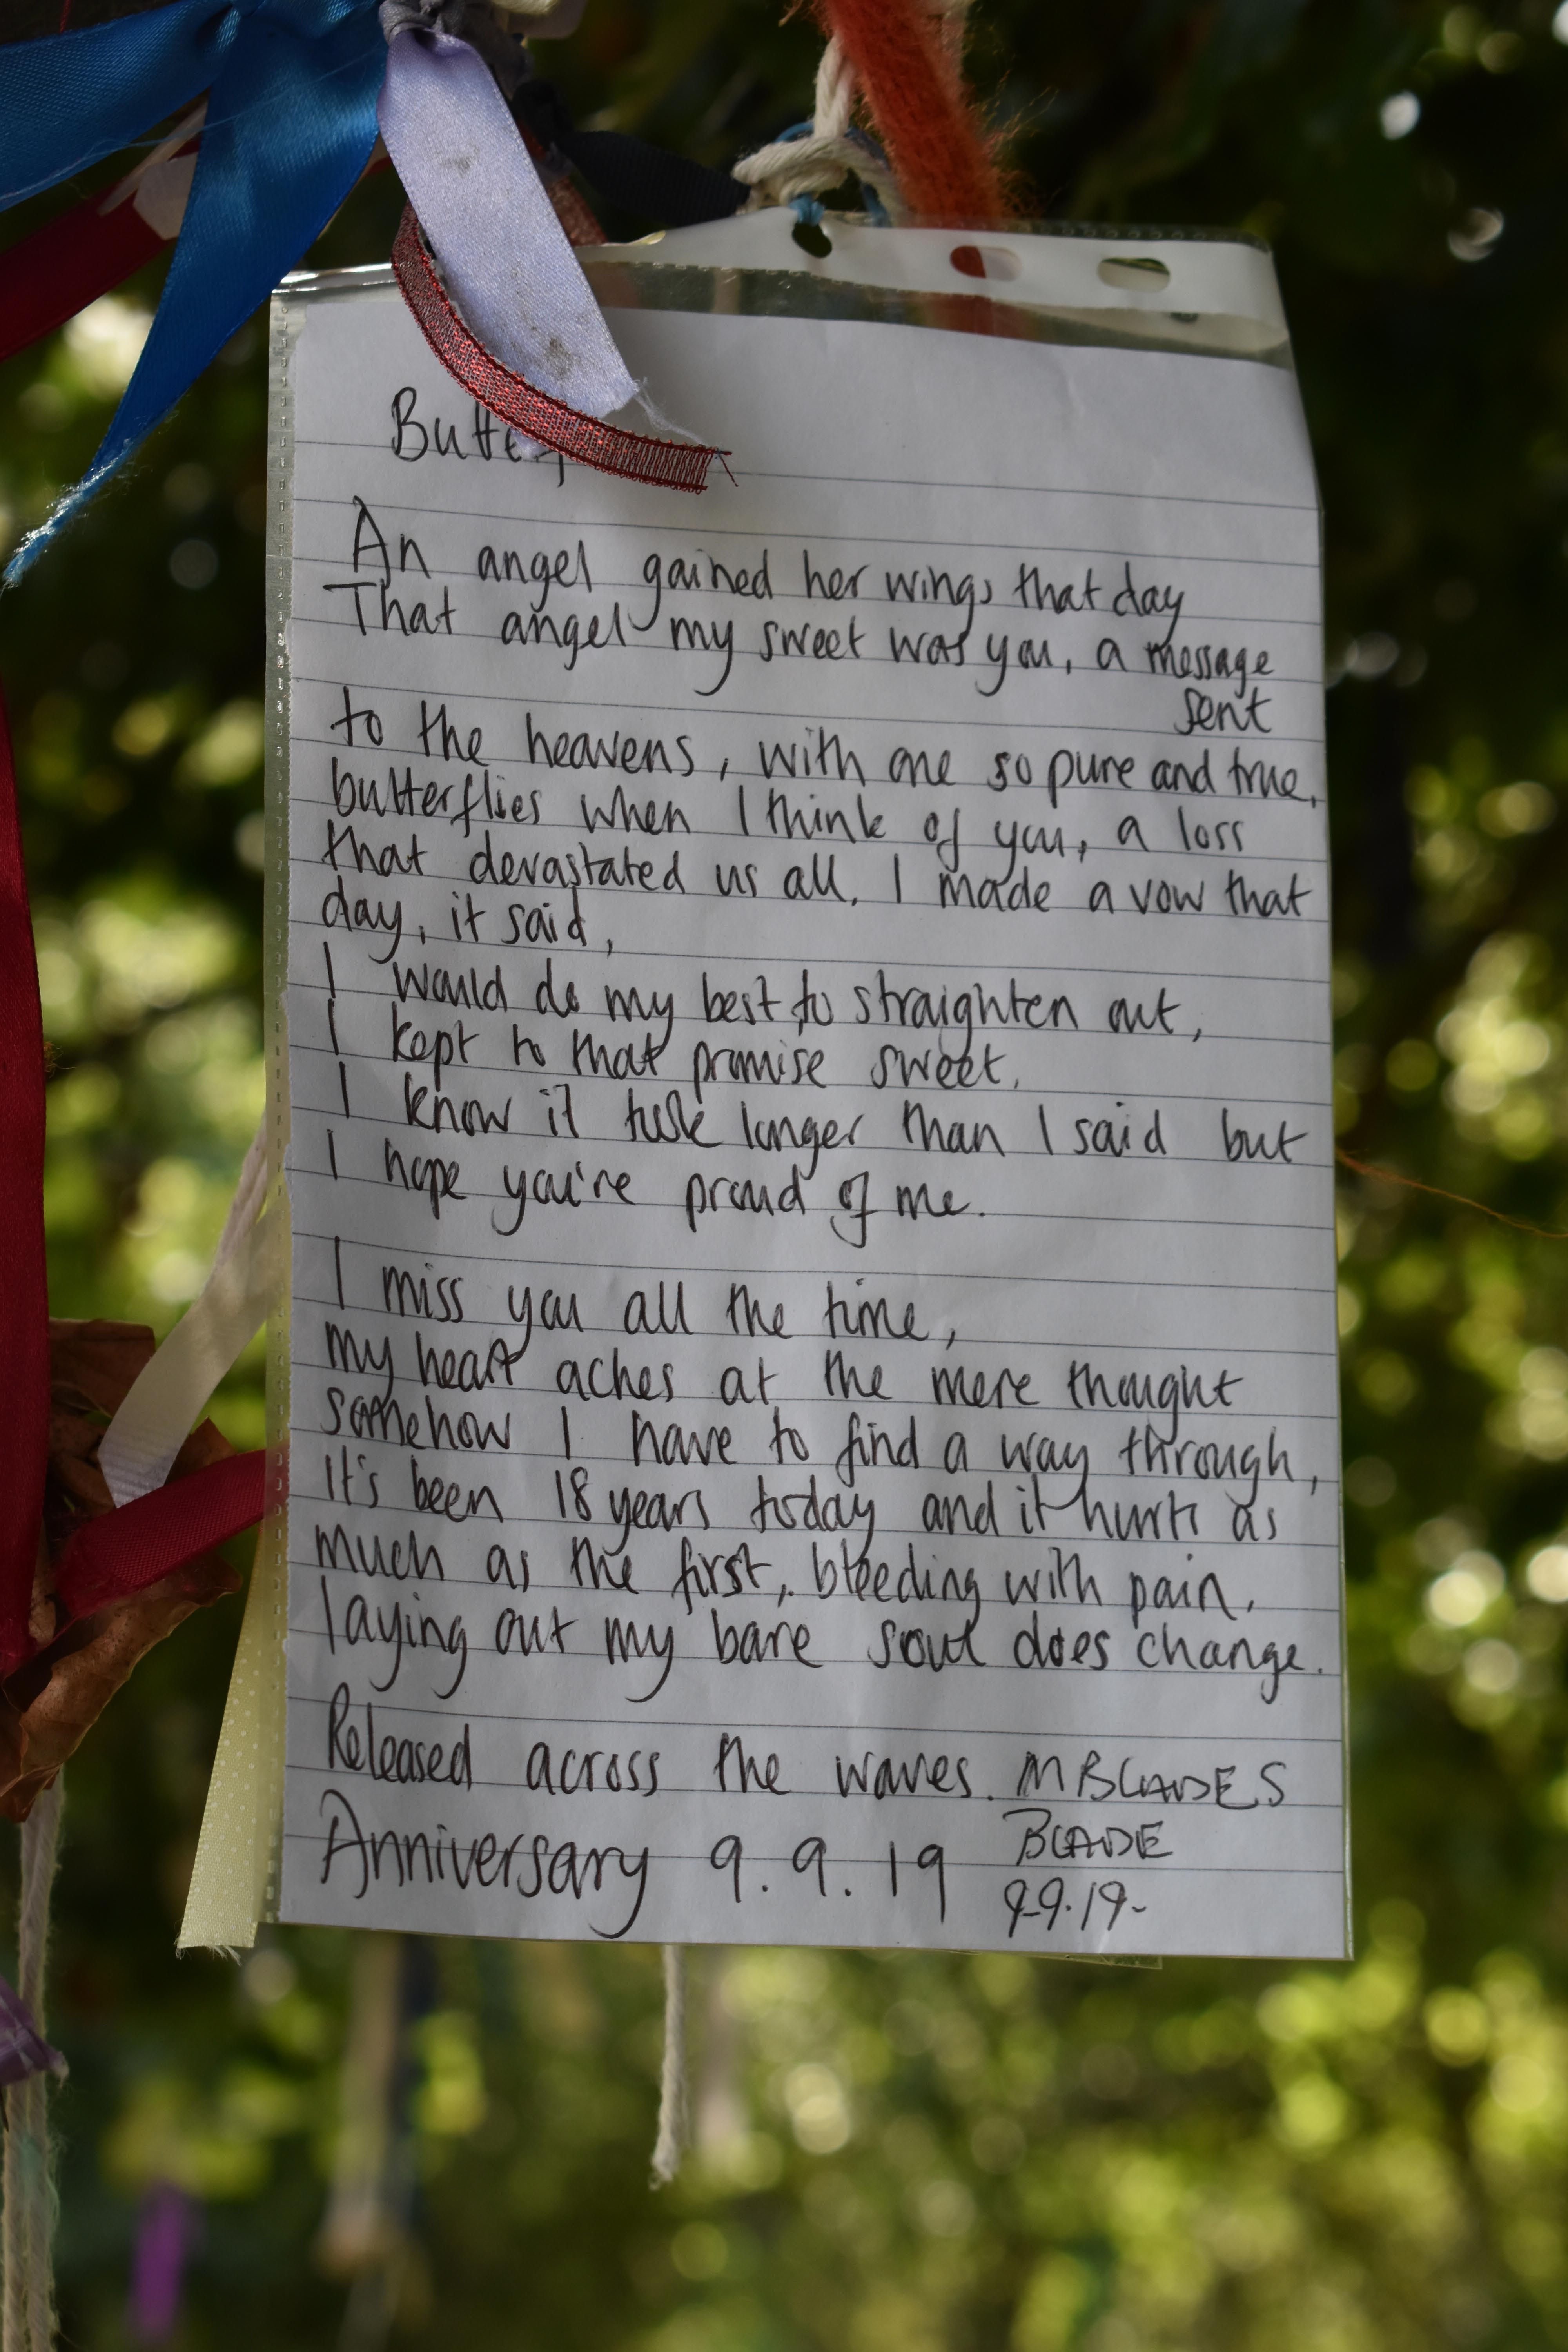 An angel gained her wings that day
That angel my sweet was you, a message
sent
to the heavens, with one so pure and true,
butterflies when I think of you, a loss
that devastated us all. I made a vow that
day, it said,
I would do my best to straighten out,
I kept to that promise sweet.
I know it took longer than I said but
I hope you're proud of me.
I miss you all the time,
my heart aches at the mere thought
somehow I have to find a way through,
It's been 18 years today and it hurts as
much as the first, bleeding with pain,
laying out my bare soul does change.
Released across the waves. M BLADES
Anniversary 9.9.19 BLADE
9-9.19-